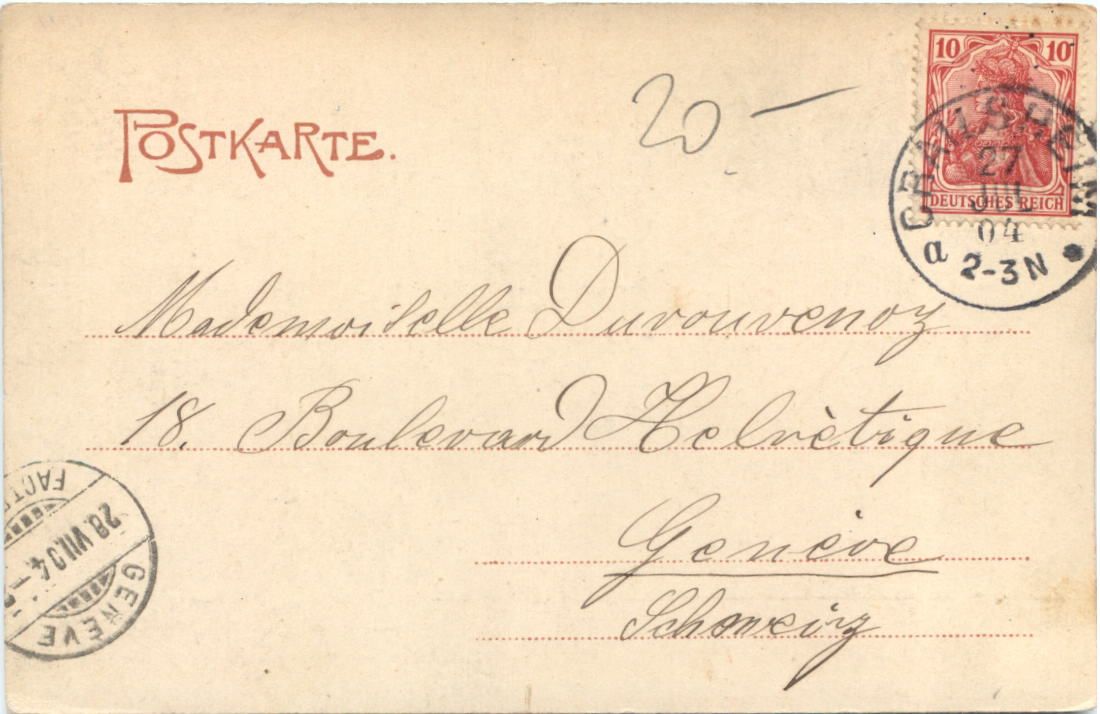 POSTKARTE.
20 –
10 10
DEUTSCHES REICH
CRAILSHEIM
27
JUL
04
2-3N
a
Mademoiselle Duvouvenoz
18. Boulevard Helvètique
Genève
Schweiz
GENÈVE
28.VII.04
FACT